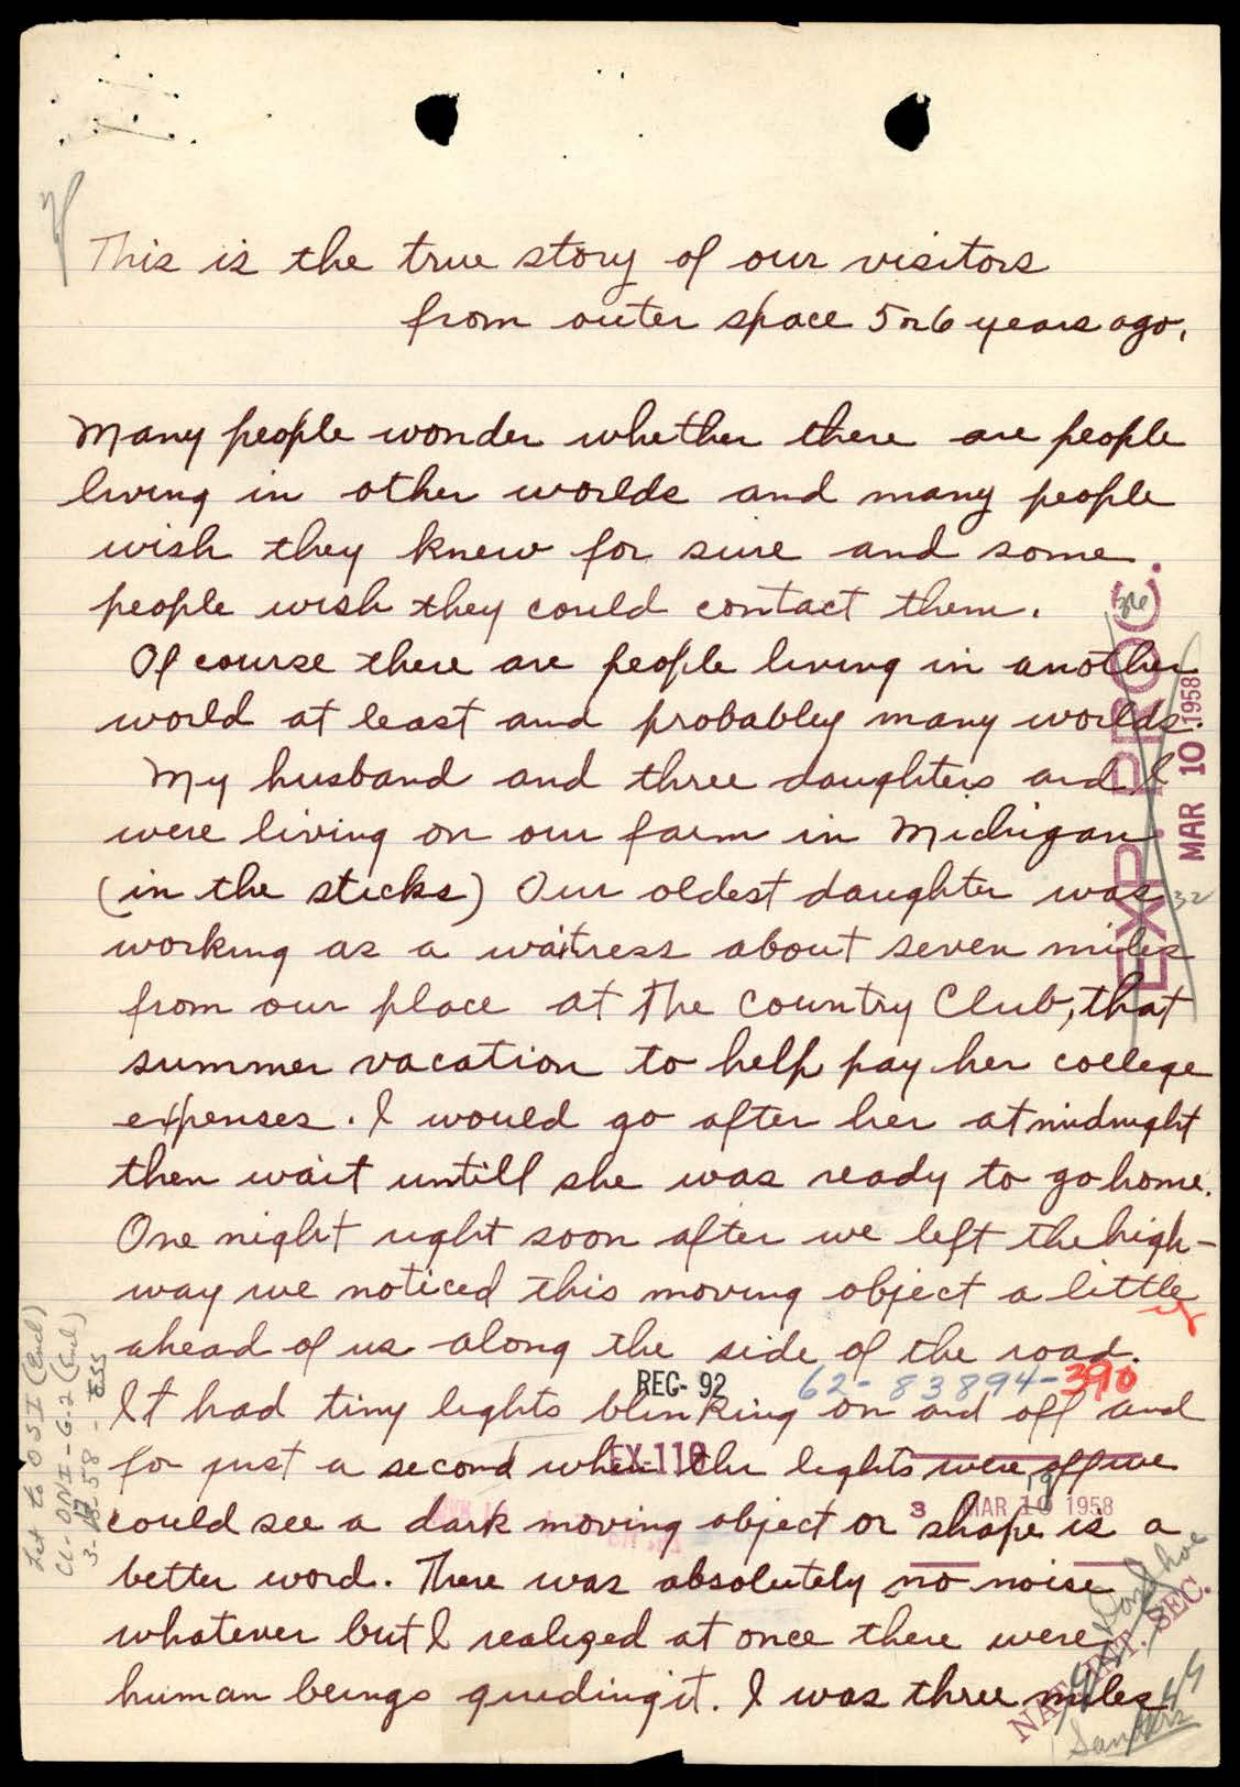 This is the true story of our visitors
from outer space 5 or 6 years ago.
Many people wonder whether there are people
living in other worlds and many people
wish they knew for sure and some
people wish they could contact them.
Of course there are people living in another
world at least and probabley many worlds.
My husband and three daughters and I
were living on our farm in Michigan
(in the sticks) Our oldest daughter was
working as a waitress about seven miles
from our place at the Country Club, that
summer vacation to help pay her college
expenses. I would go after her at midnight
then wait untill she was ready to go home.
One night right soon after we left the high-
way we noticed this moving object a little
ahead of us along the side of the road.
It had tiny lights blinking on and off and
for just a second when the lights were off we
could see a dark moving object or shape is a
better word. There was absolutely no noise
whatever but I realized at once there were
human beings guiding it. I was three miles
EXP. PROC.
MAR 10 1958
32
REC- 92
62-83894-390
EX-110
3 MAR 19 1958
NAT. INT. SEC.
Let to OSI (Encl)
CC- ONI-G-2 (Encl)